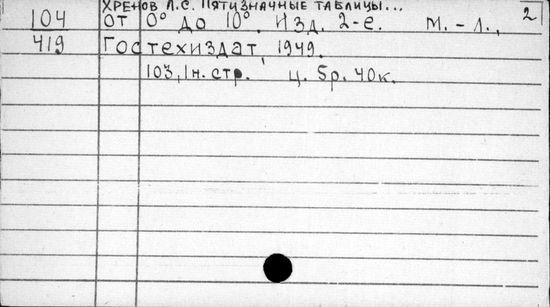 Хренов Л.С. Пятизначные таблицы... 2
104 от 0° до 10°. Изд. 2-е. М.-Л.,
419 Гостехиздат, 1949.
103, 1 н. стр. ц. 5р. 40к.